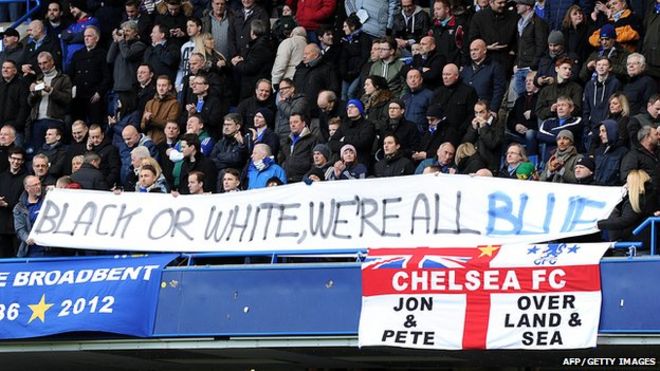 BLACK OR WHITE, WE'RE ALL BLUE
E BROADBENT
86 2012
CFC
CHELSEA FC
JON
& 
PETE
OVER
LAND &
SEA
AFP/GETTY IMAGES